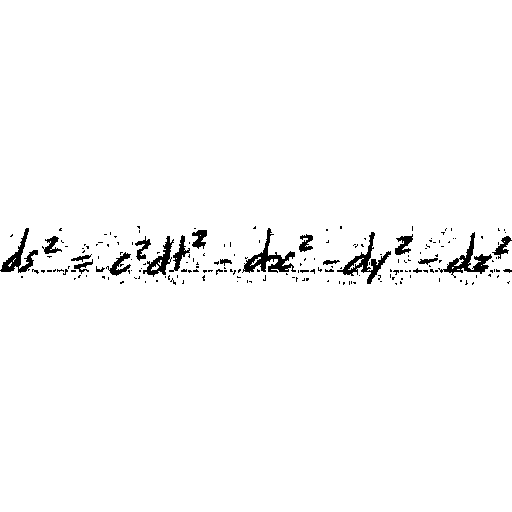 ds² = c²dt² - dx² - dy² - dz²